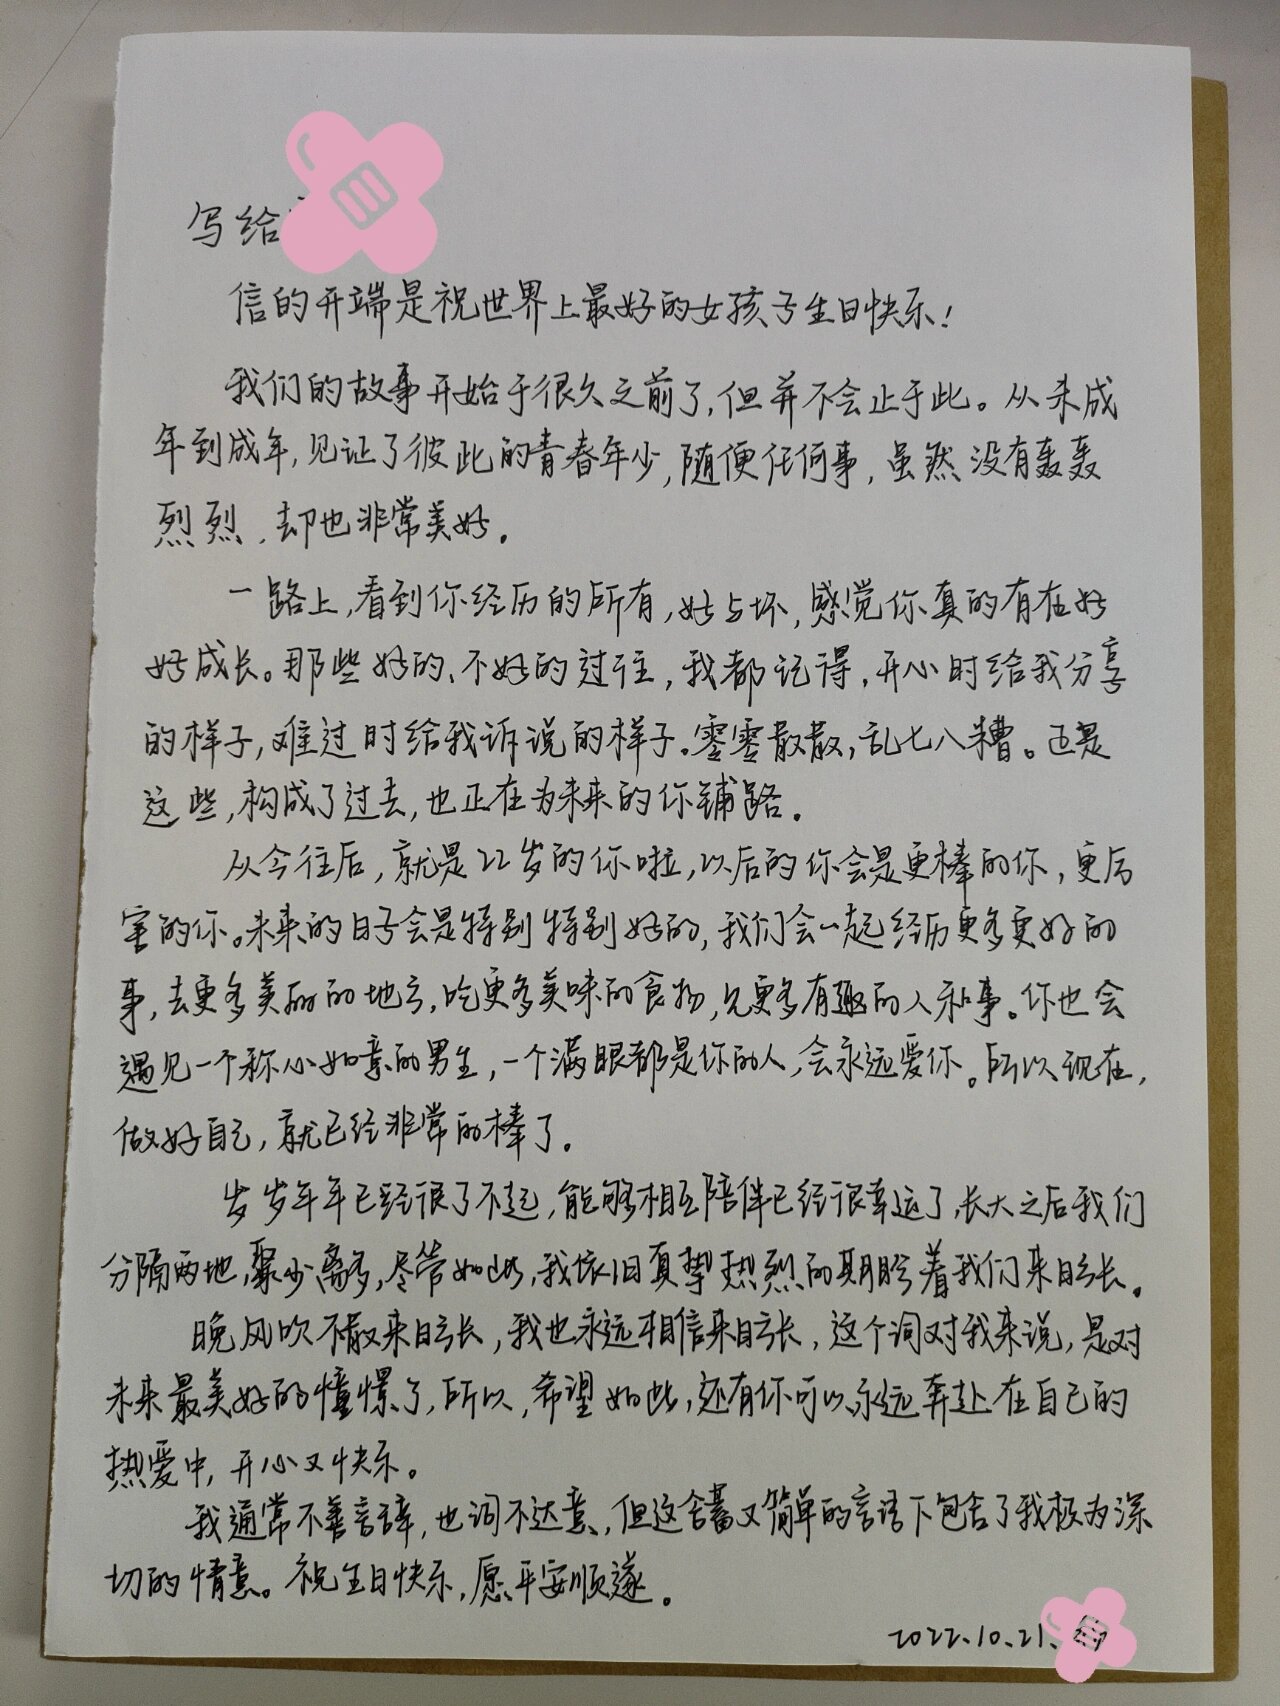 写给
信的开端是祝世界上最好的女孩子生日快乐!
我们的故事开始于很久之前了,但并不会止于此。从未成
年到成年,见证了彼此的青春年少,随便任何事,虽然没有轰轰
烈烈,却也非常美好。
一路上,看到你经历的所有,好与坏,感觉你真的有在好
好成长。那些好的、不好的过往,我都记得,开心时给我分享
的样子,难过时给我诉说的样子。零零散散,乱七八糟。还是
这些,构成了过去,也正在为未来的你铺路。
从今往后,就是22岁的你啦,以后的你会是更棒的你,更厉
害的你。未来的日子会是特别特别好的,我们会一起经历更多更好的
事,去更多美丽的地方,吃更多美味的食物,见更多有趣的人和事。你也会
遇见一个称心如意的男生,一个满眼都是你的人,会永远爱你。所以现在,
做好自己,就已经非常的棒了。
岁岁年年已经很了不起,能够相互陪伴已经很幸运了,长大之后我们
分隔两地,聚少离多,尽管如此,我依旧真挚热烈的期盼着我们来日方长。
晚风吹不散来日方长,我也永远相信来日方长,这个词对我来说,是对
未来最美好的憧憬了,所以,希望如此,还有你可以永远奔赴在自己的
热爱中,开心又快乐。
我通常不善言辞,也词不达意,但这含蓄又简单的言语下包含了我极为深
切的情意。祝生日快乐,愿平安顺遂。
2022.10.21.